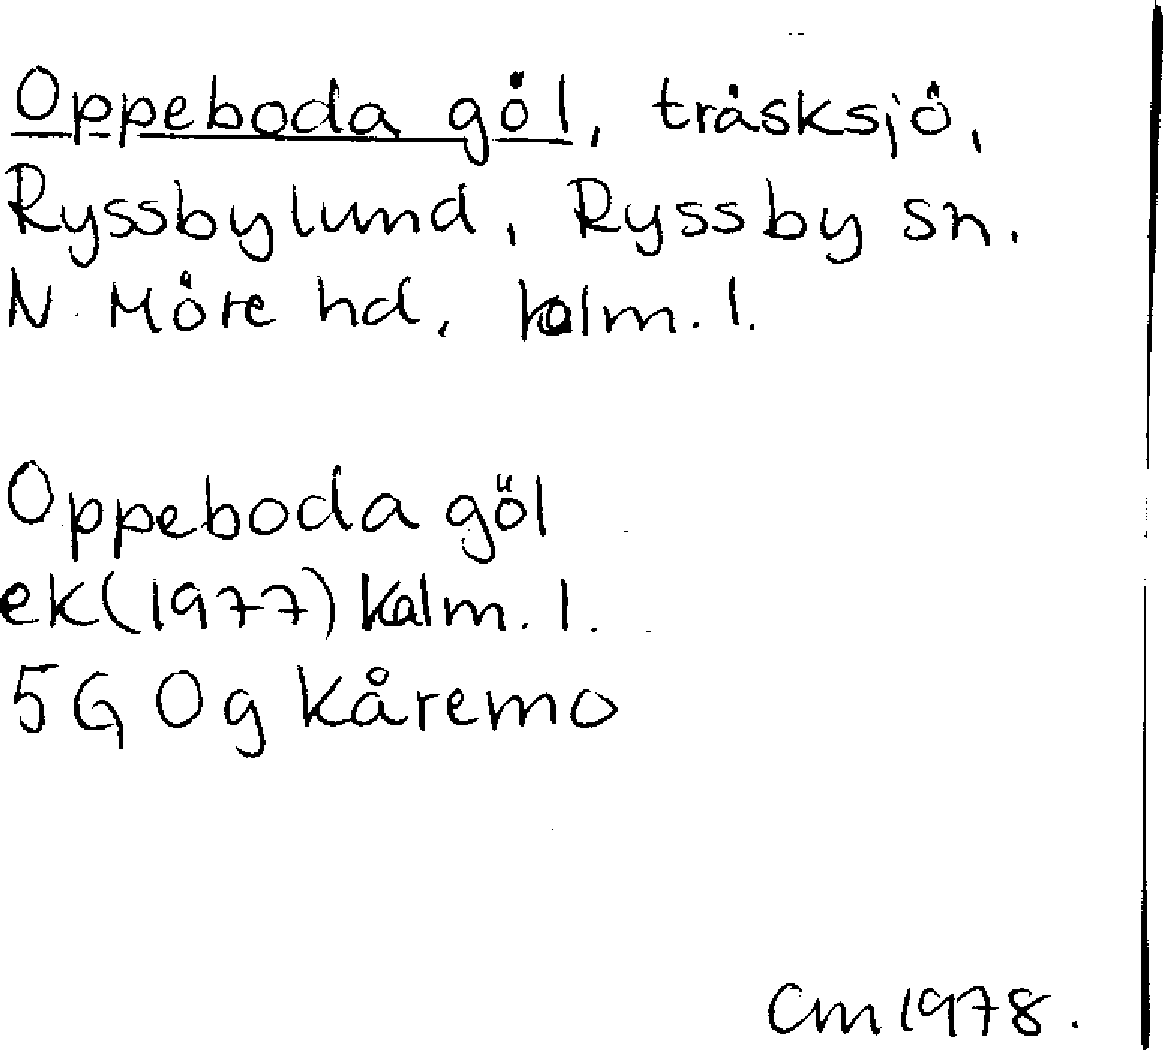 Oppeboda göl, träsksjö,
Ryssbylund, Ryssby sn.
N. Möre hd, kalm. l.
Oppeboda göl
ek (1977) Kalm. l.
5G 0g Kåremo
Cm 1978.